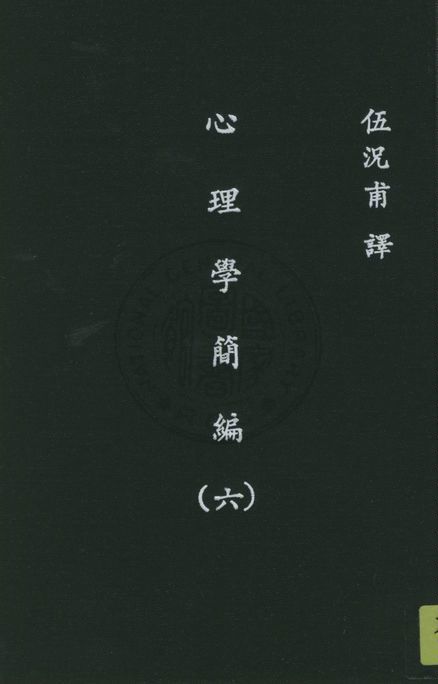 伍況甫譯
心理學簡編
(六)